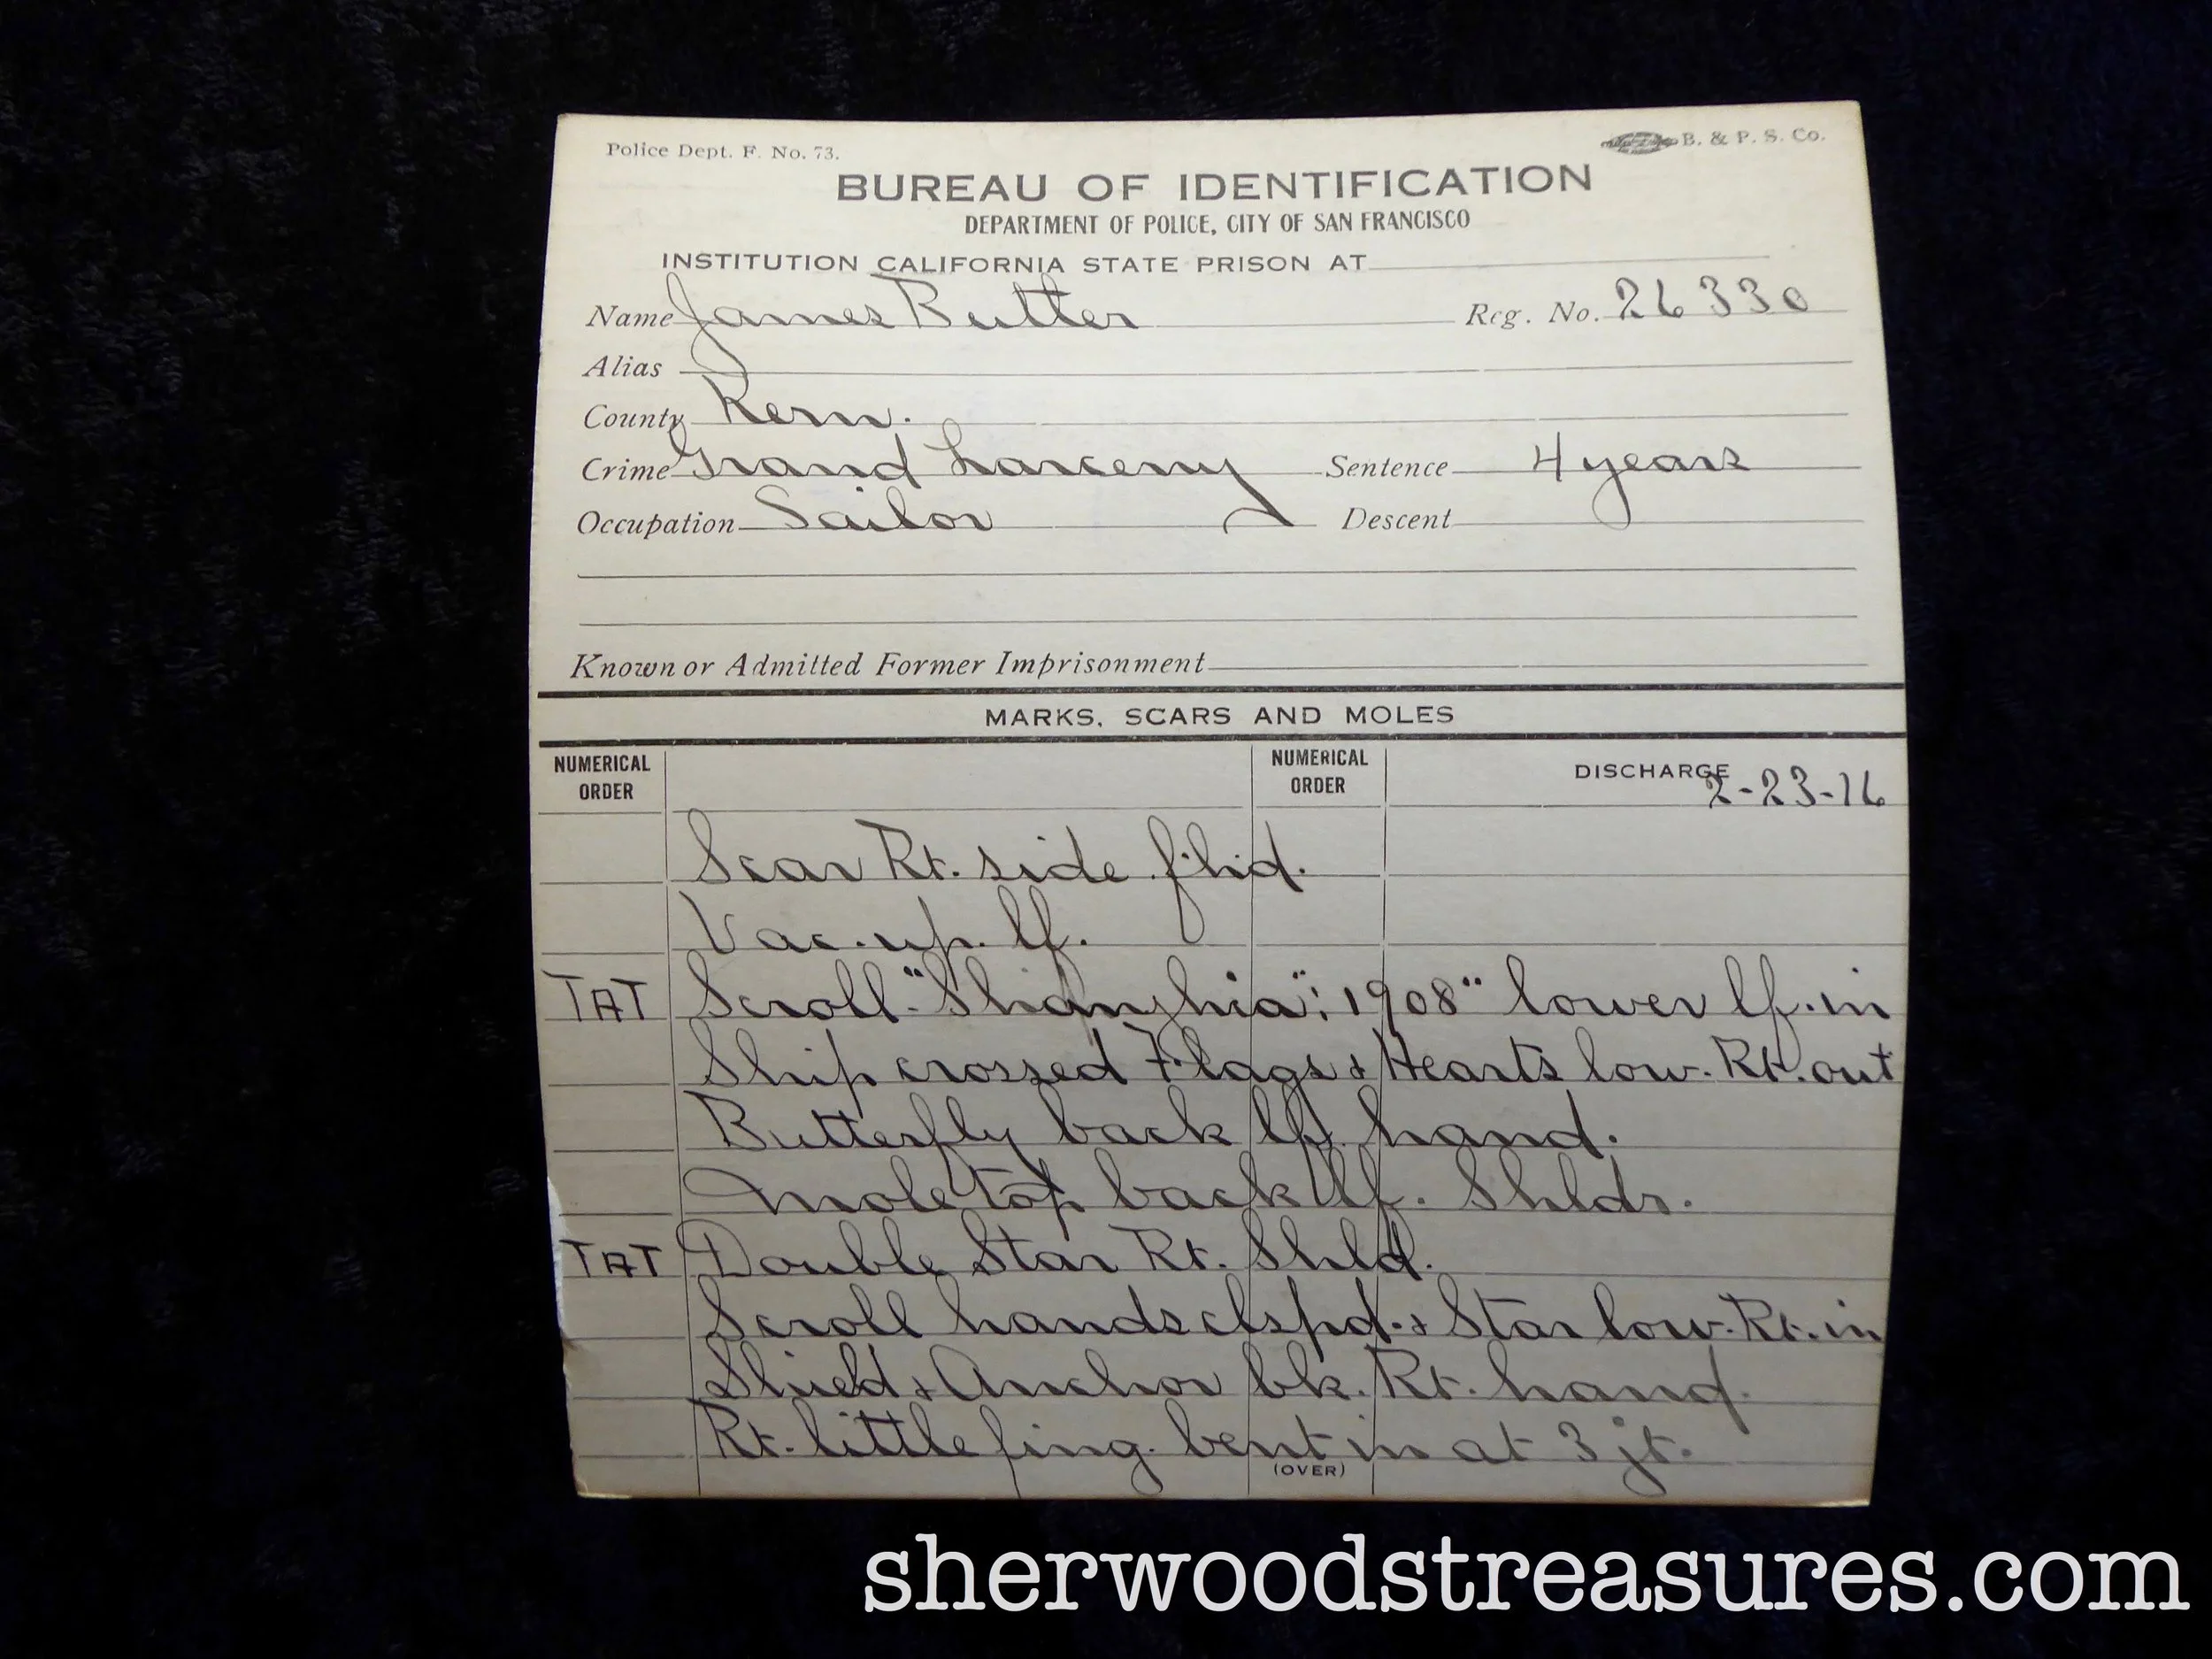 Police Dept. F. No. 73.
B. & P. S. Co.
BUREAU OF IDENTIFICATION
DEPARTMENT OF POLICE, CITY OF SAN FRANCISCO
INSTITUTION CALIFORNIA STATE PRISON AT
Name James Butler Reg. No. 26330
Alias
County Kern.
Crime Grand Larceny Sentence 4 years
Occupation Sailor Descent
Known or Admitted Former Imprisonment
MARKS, SCARS AND MOLES
NUMERICAL ORDER NUMERICAL ORDER DISCHARGE 2-23-16
Scar Rt. side f'hd.
Vac. up. lf.
TAT Scroll "Shanghia"; 1908" lower lf. in
Ship crossed Flags & Hearts low. Rt. out
Butterfly back lf. hand.
Mole top back lf. Shldr.
TAT Double Star Rt. Shld.
Scroll hands clspd. & Star low. Rt. in
Shield & Anchor bk. Rt. hand.
Rt. little fing. bent in at 3 jt.
(OVER)
sherwoodstreasures.com